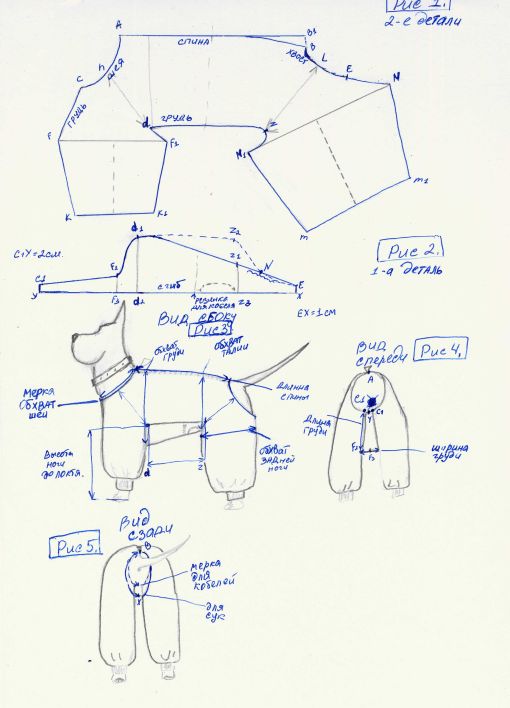 Рис 1.
2-е детали
A
B1
СПИНА
B
ХВОСТ
L
E
N
h
ШЕЯ
C
ГРУДЬ
d
ГРУДЬ
z
F
F1
N1
K
K1
m1
m
d1
Z2
C1Y=2см.
Рис 2.
1-а деталь
F2
Z1
N
C1
E
Y
СГИБ
X
F3
d2
резинка
для кобеля
Z3
EX=1см
Вид сбоку
Рис 3
обхват
груди
обхват
талии
Вид
спереди
Рис 4.
A
Мерка
Обхват
шеи
Длинна
спины
C1
C1
Y
Длина
груди
Высота
ноги
до локтя.
обхват
задней
ноги
F2
F3
ширина
груди
d
z
Вид
сзади
Рис 5.
B
мерка
для
кобелей
X
для
сук